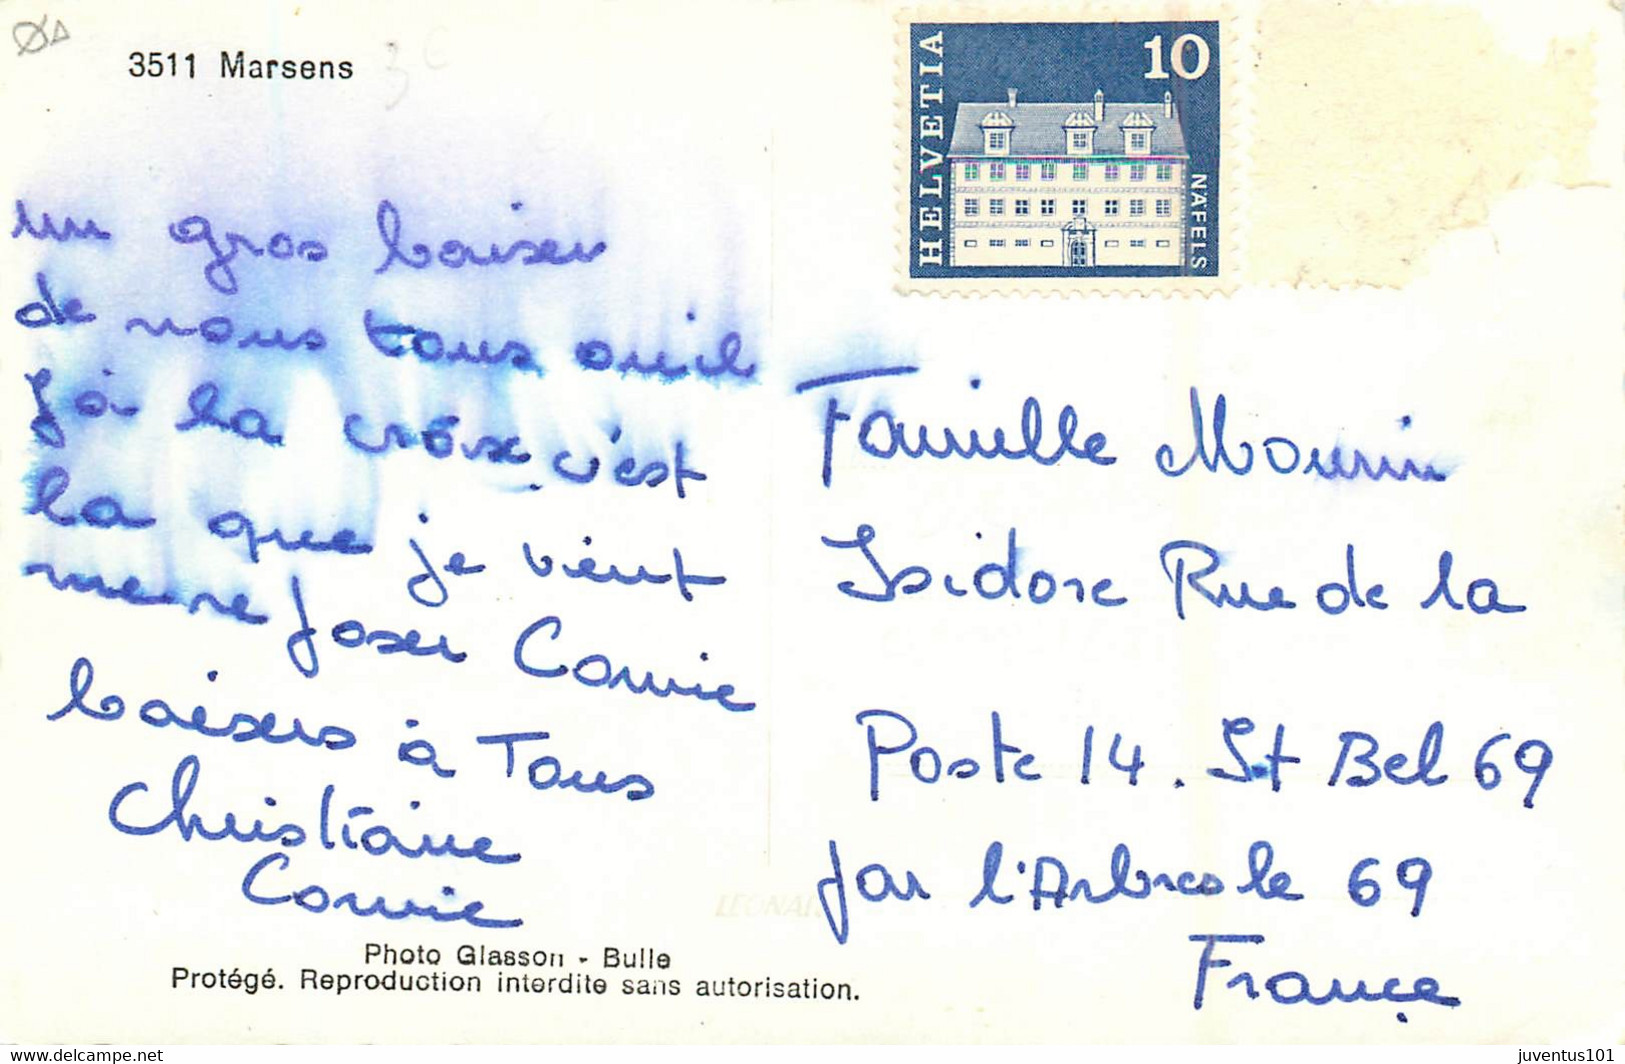 3511 Marsens
HELVETIA
10
NÄFELS
un gros baiser
de nous tous ou il
y a la croix c'est
la que je vient
mene Joser Connie
baisers à Tous
Christiane
Connie
Famille Mounin
Isidore Rue de la
Poste 14. St Bel 69
par l'Arbresle 69
France
LEONAR
Photo Glasson - Bulle
Protégé. Reproduction interdite sans autorisation.
juventus101